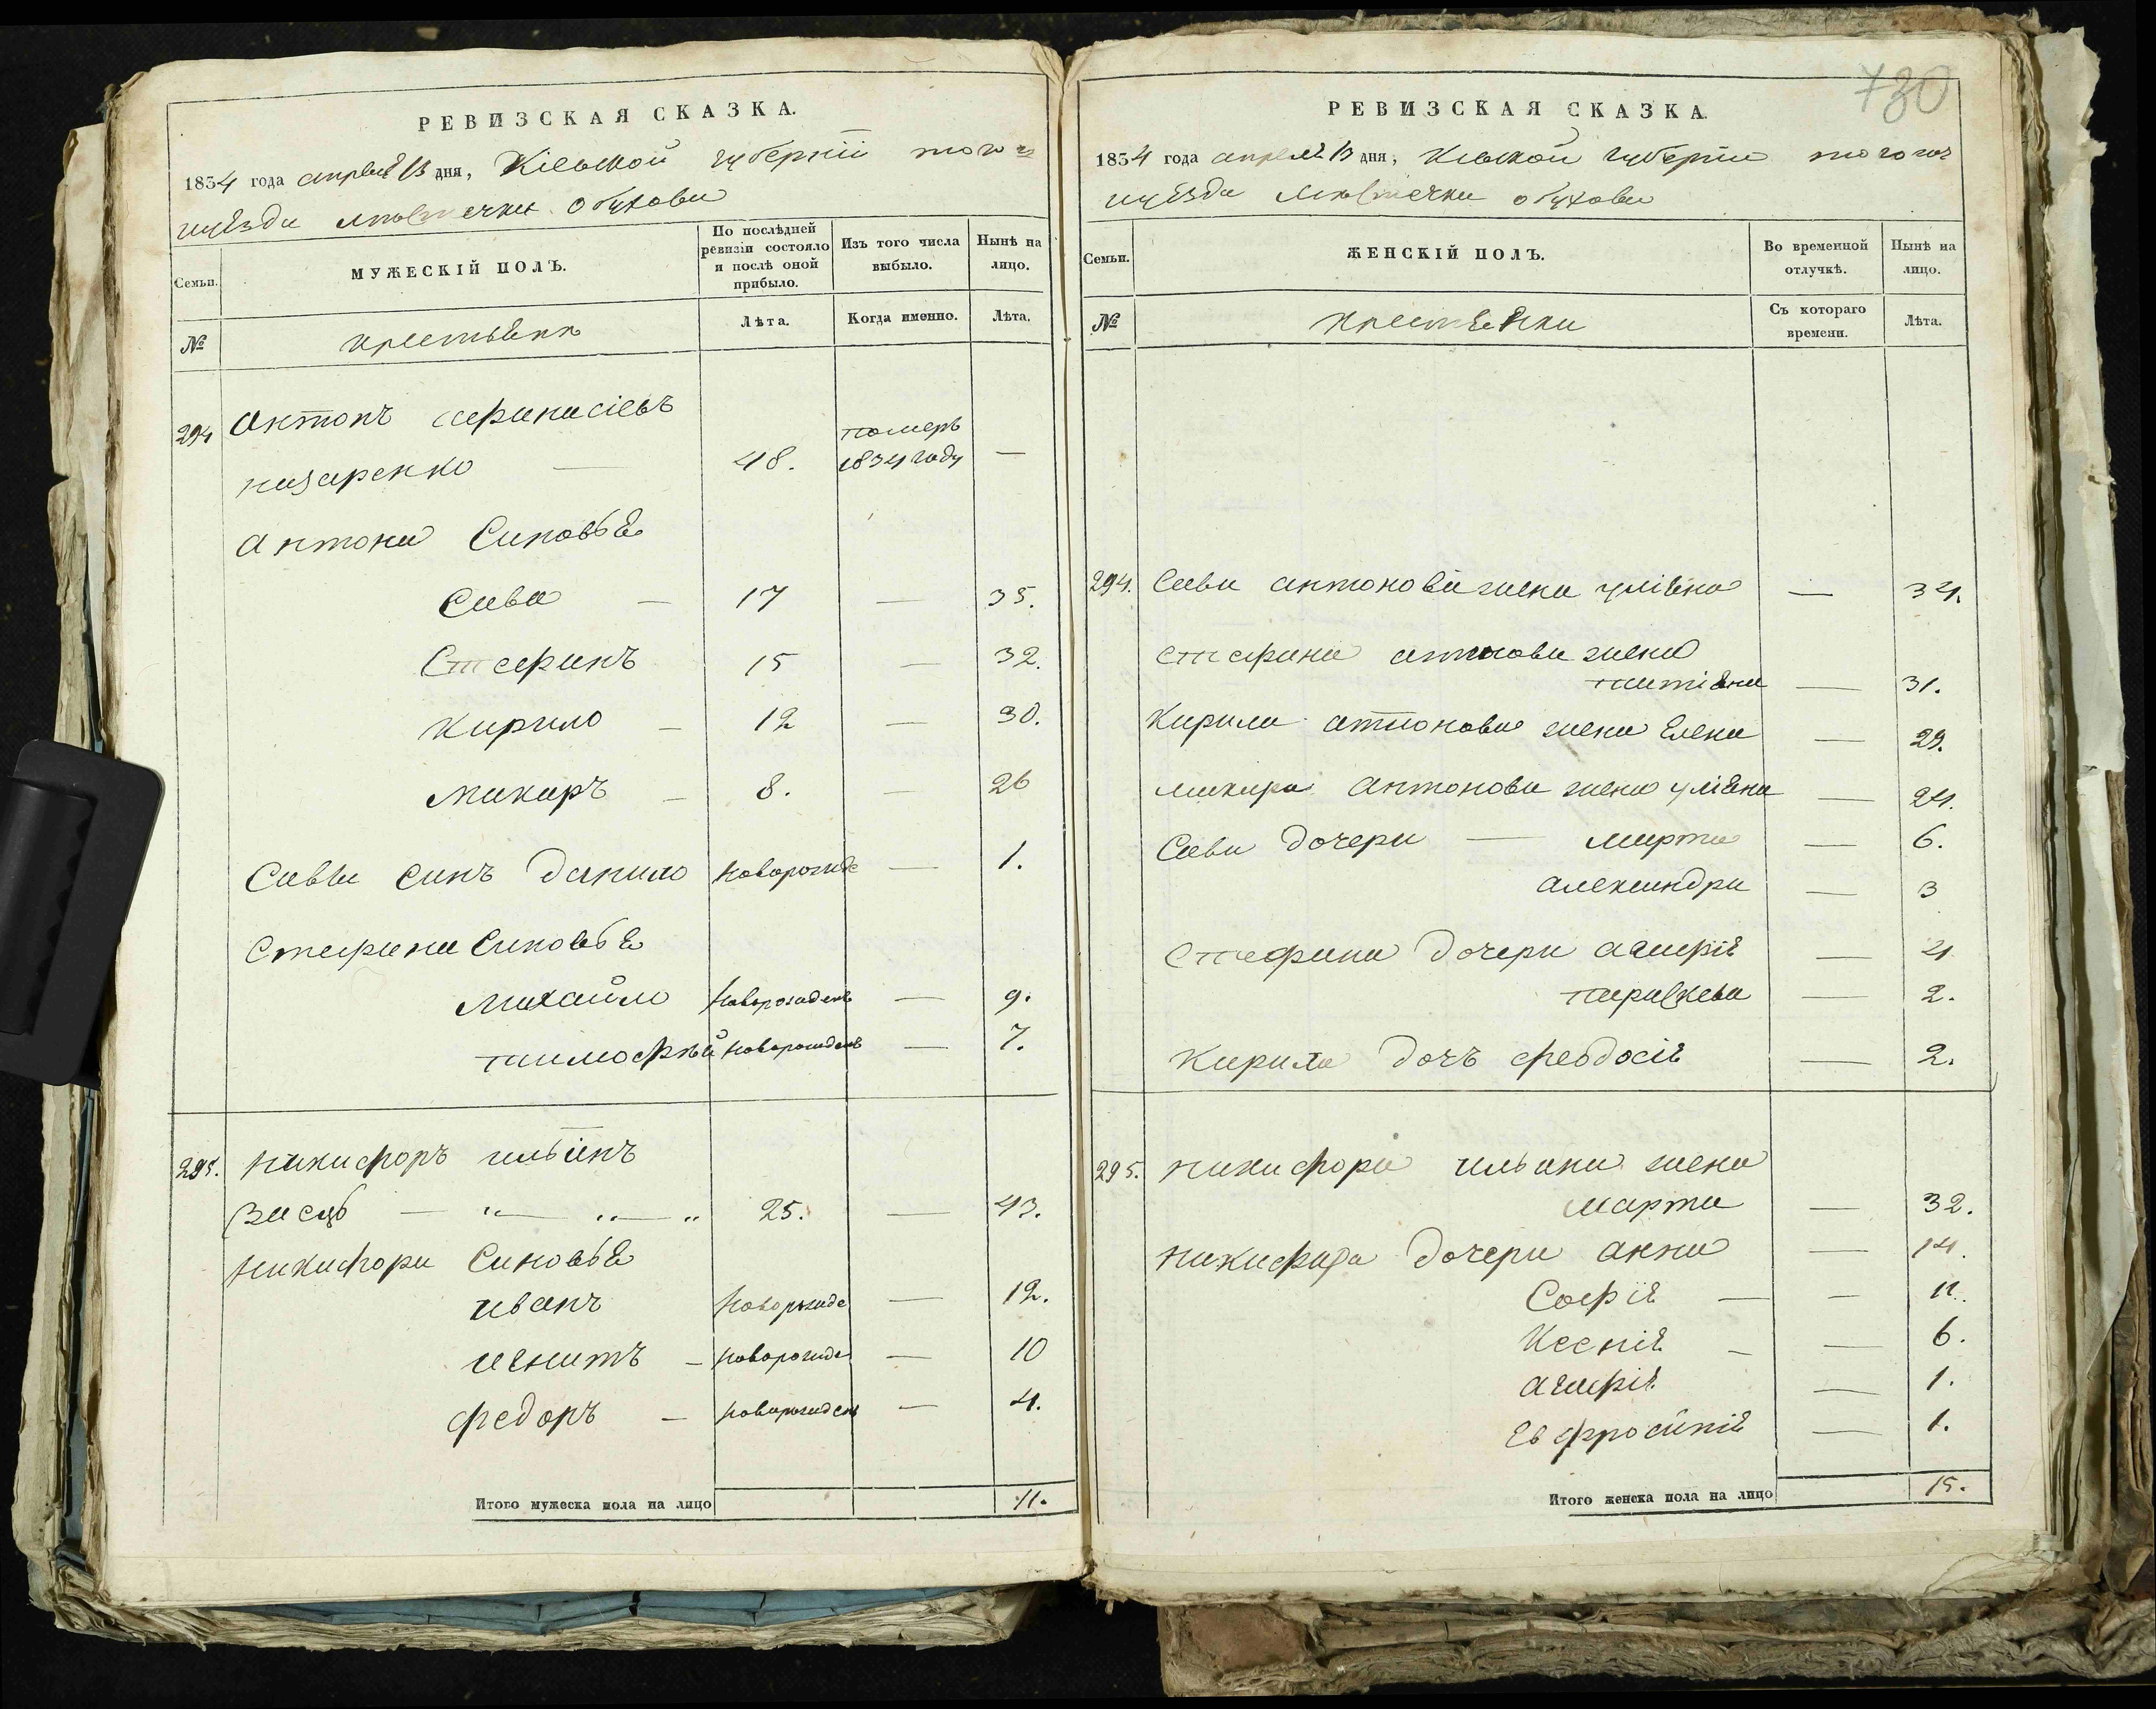 РЕВИЗСКАЯ СКАЗКА.
1834 года апреля 13 дня, Кіевской губерніи того ж
уѣзда мѣстечка обухова
Семьи.
МУЖЕСКІЙ ПОЛЪ.
По послѣдней ревизіи состояло и послѣ оной прибыло.
Изъ того числа выбыло.
Нынѣ на лицо.
№
крестьяне
Лѣта.
Когда именно.
Лѣта.
294 Антонъ афанасіевъ
назаренко — 48. померъ 1834 году —
Антона Синовье
Сава — 17 — 35.
Стефанъ 15 — 32.
Кирило — 12 — 30.
макаръ — 8. — 26
Саввы синъ данило новорожде — 1.
Стефана Синовье
михайло новорожденъ — 9.
тимофѣй новорожденъ — 7.
295. никифоръ ильинъ
Заецъ — 25. — 43.
никифора Синовье
иванъ новорожде — 12.
игнатъ — новорожде — 10
федоръ — новорожденъ — 4.
Итого мужеска пола на лицо 11.
730
РЕВИЗСКАЯ СКАЗКА.
1834 года апреля 13 дня, Кіевской губерніи того ж
уѣзда мѣстечка обухова
Семьи.
ЖЕНСКІЙ ПОЛЪ.
Во временной отлучкѣ.
Нынѣ на лицо.
№
крестьянки
Съ котораго времени.
Лѣта.
294. Савы антонова жена уліяна — 34.
стефана антонова жена
татіана — 31.
Кирила антонова жена Елена — 29.
макара антонова жена уліяна — 24.
Савы дочери — марта — 6.
александра — 3
стефана дочери агафіе — 4
параскева — 2.
Кирила дочъ феодосіе — 2.
295. никифора ильина жена
марта — 32.
никифора дочери анна — 14.
Софіе — — 11.
Ксеніе — — 6.
агафіе — 1.
Евфросиніе — 1.
Итого женска пола на лицо 15.